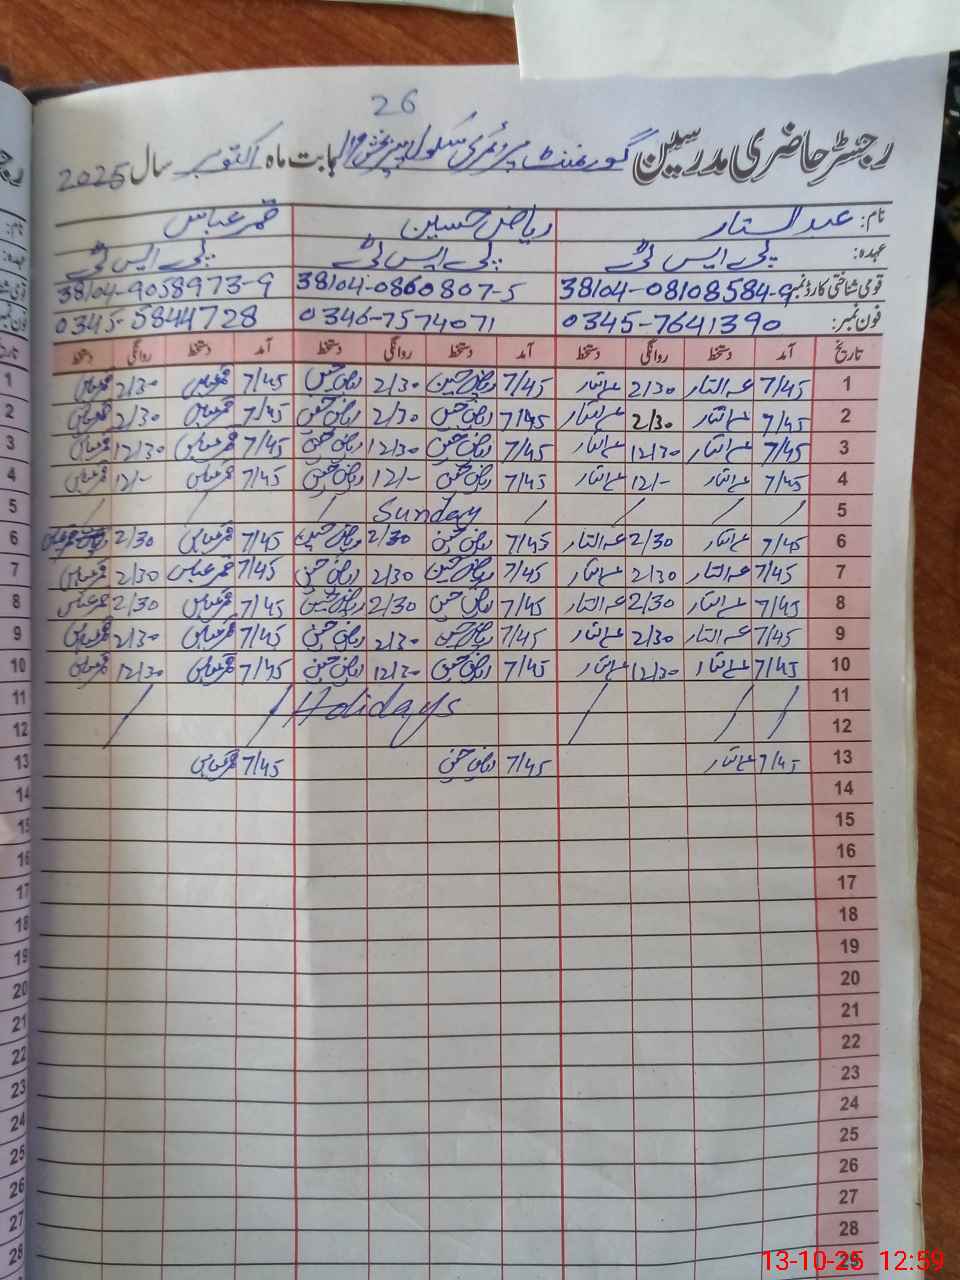 26
رجسٹر حاضری مدرسین گورنمنٹ پرائمری سکول پیر بخش والا بابت ماہ اکتوبر سال 2025
نام: عبدالستار ریاض حسین قمر عباس
عہدہ: پی ایس ٹی پی ایس ٹی پی ایس ٹی
قومی شناختی کارڈ نمبر 38104-08108584-9 38104-0860807-5 38104-9058973-9
فون نمبر: 0345-7641390 0346-7574071 0345-5844728
تاریخ آمد دستخط روانگی دستخط آمد دستخط روانگی دستخط آمد دستخط روانگی دستخط
1 7/45 عبدالستار 2/30 عبدالستار 7/45 ریاض حسین 2/30 ریاض حسین 7/45 قمر عباس 2/30 قمر عباس
2 7/45 عبدالستار 2/30 عبدالستار 7/45 ریاض حسین 2/30 ریاض حسین 7/45 قمر عباس 2/30 قمر عباس
3 7/45 عبدالستار 12/30 عبدالستار 7/45 ریاض حسین 12/30 ریاض حسین 7/45 قمر عباس 12/30 قمر عباس
4 7/45 عبدالستار 12/- عبدالستار 7/45 ریاض حسین 12/- ریاض حسین 7/45 قمر عباس 12/- قمر عباس
5 / / / Sunday / / /
6 7/45 عبدالستار 2/30 عبدالستار 7/45 ریاض حسین 2/30 ریاض حسین 7/45 قمر عباس 2/30 قمر عباس
7 7/45 عبدالستار 2/30 عبدالستار 7/45 ریاض حسین 2/30 ریاض حسین 7/45 قمر عباس 2/30 قمر عباس
8 7/45 عبدالستار 2/30 عبدالستار 7/45 ریاض حسین 2/30 ریاض حسین 7/45 قمر عباس 2/30 قمر عباس
9 7/45 عبدالستار 2/30 عبدالستار 7/45 ریاض حسین 2/30 ریاض حسین 7/45 قمر عباس 2/30 قمر عباس
10 7/45 عبدالستار 12/30 عبدالستار 7/45 ریاض حسین 12/30 ریاض حسین 7/45 قمر عباس 12/30 قمر عباس
11 / / / Holidays / /
12
13 7/45 عبدالستار 7/45 ریاض حسین 7/45 قمر عباس
14
15
16
17
18
19
20
21
22
23
24
25
26
27
28
29
13-10-25 12:59